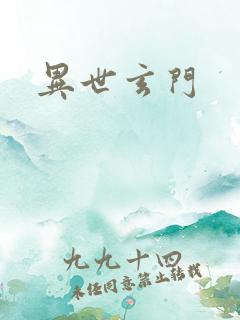 異世玄門
九九十四
未经同意禁止转载